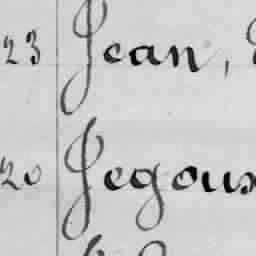 23 Jean,
20 Jegoux